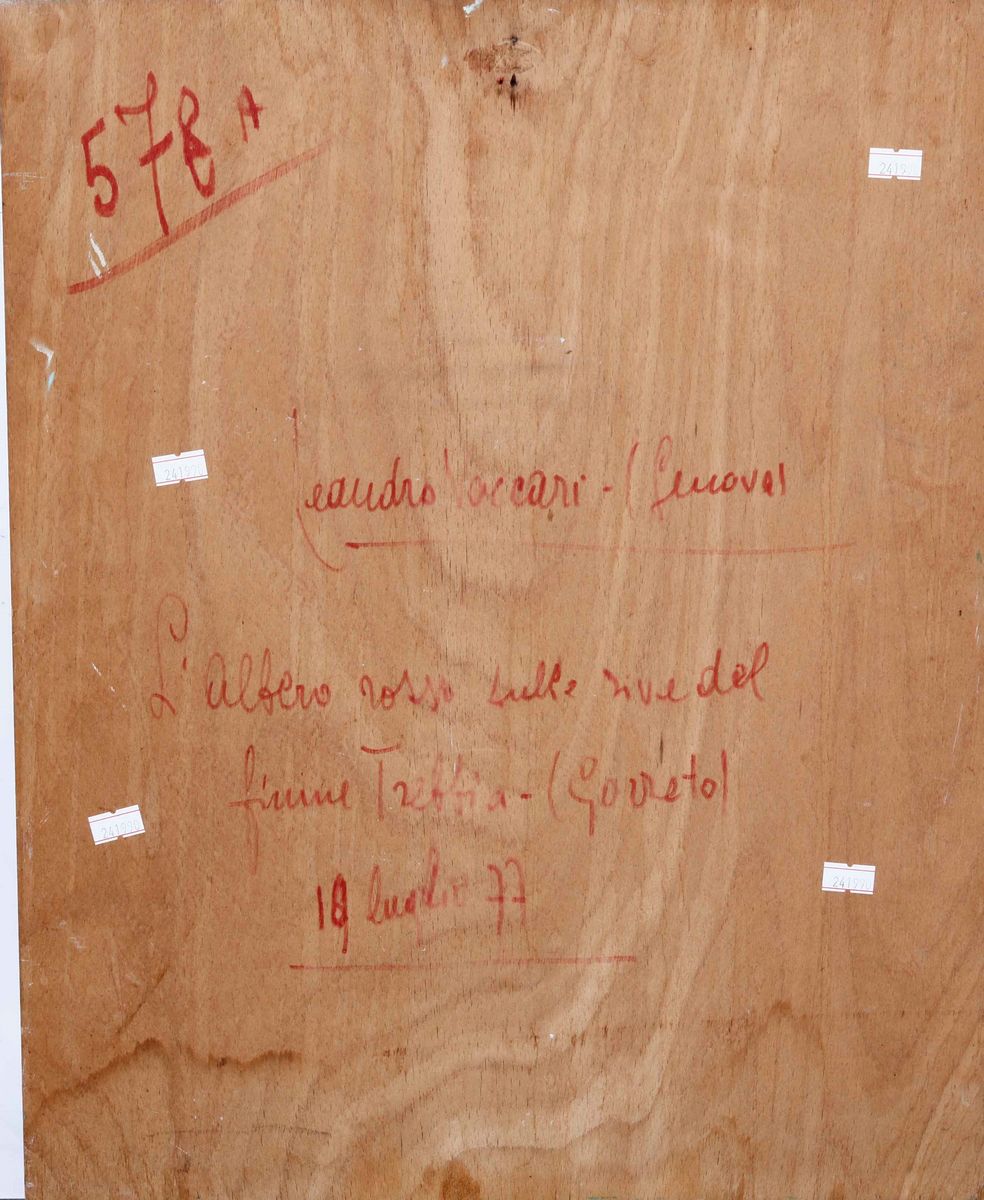 578 A
241990
241990
Leandro Vaccari - (Genova)
L'albero rosso sulle rive del
fiume Trebbia - (Gorreto)
241990
luglio 77
241990